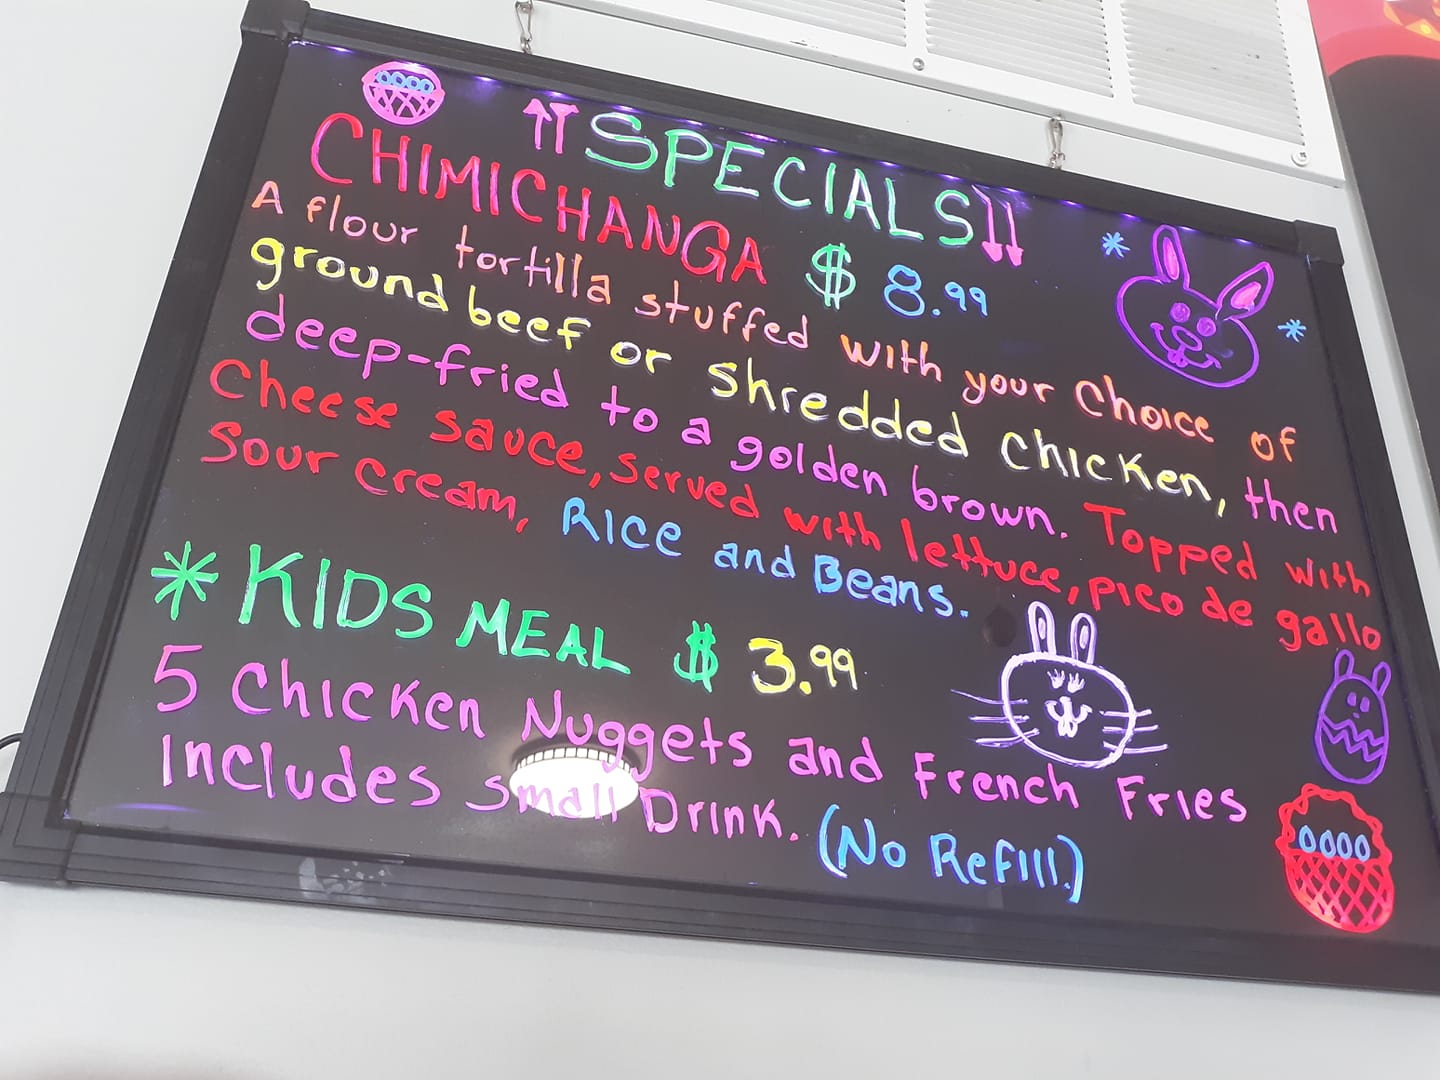 SPECIALS
CHIMICHANGA $ 8.99
A flour tortilla stuffed with your choice of
ground beef or shredded chicken, then
deep-fried to a golden brown. Topped with
Cheese sauce, served with lettuce, pico de gallo
Sour cream, Rice and Beans.
* KIDS MEAL $ 3.99
5 Chicken Nuggets and French Fries
Includes Small Drink. (No Refill.)